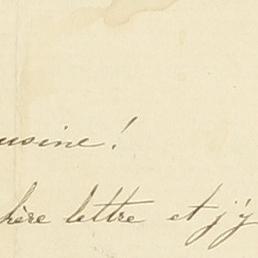 usine!
hère lettre et j'y